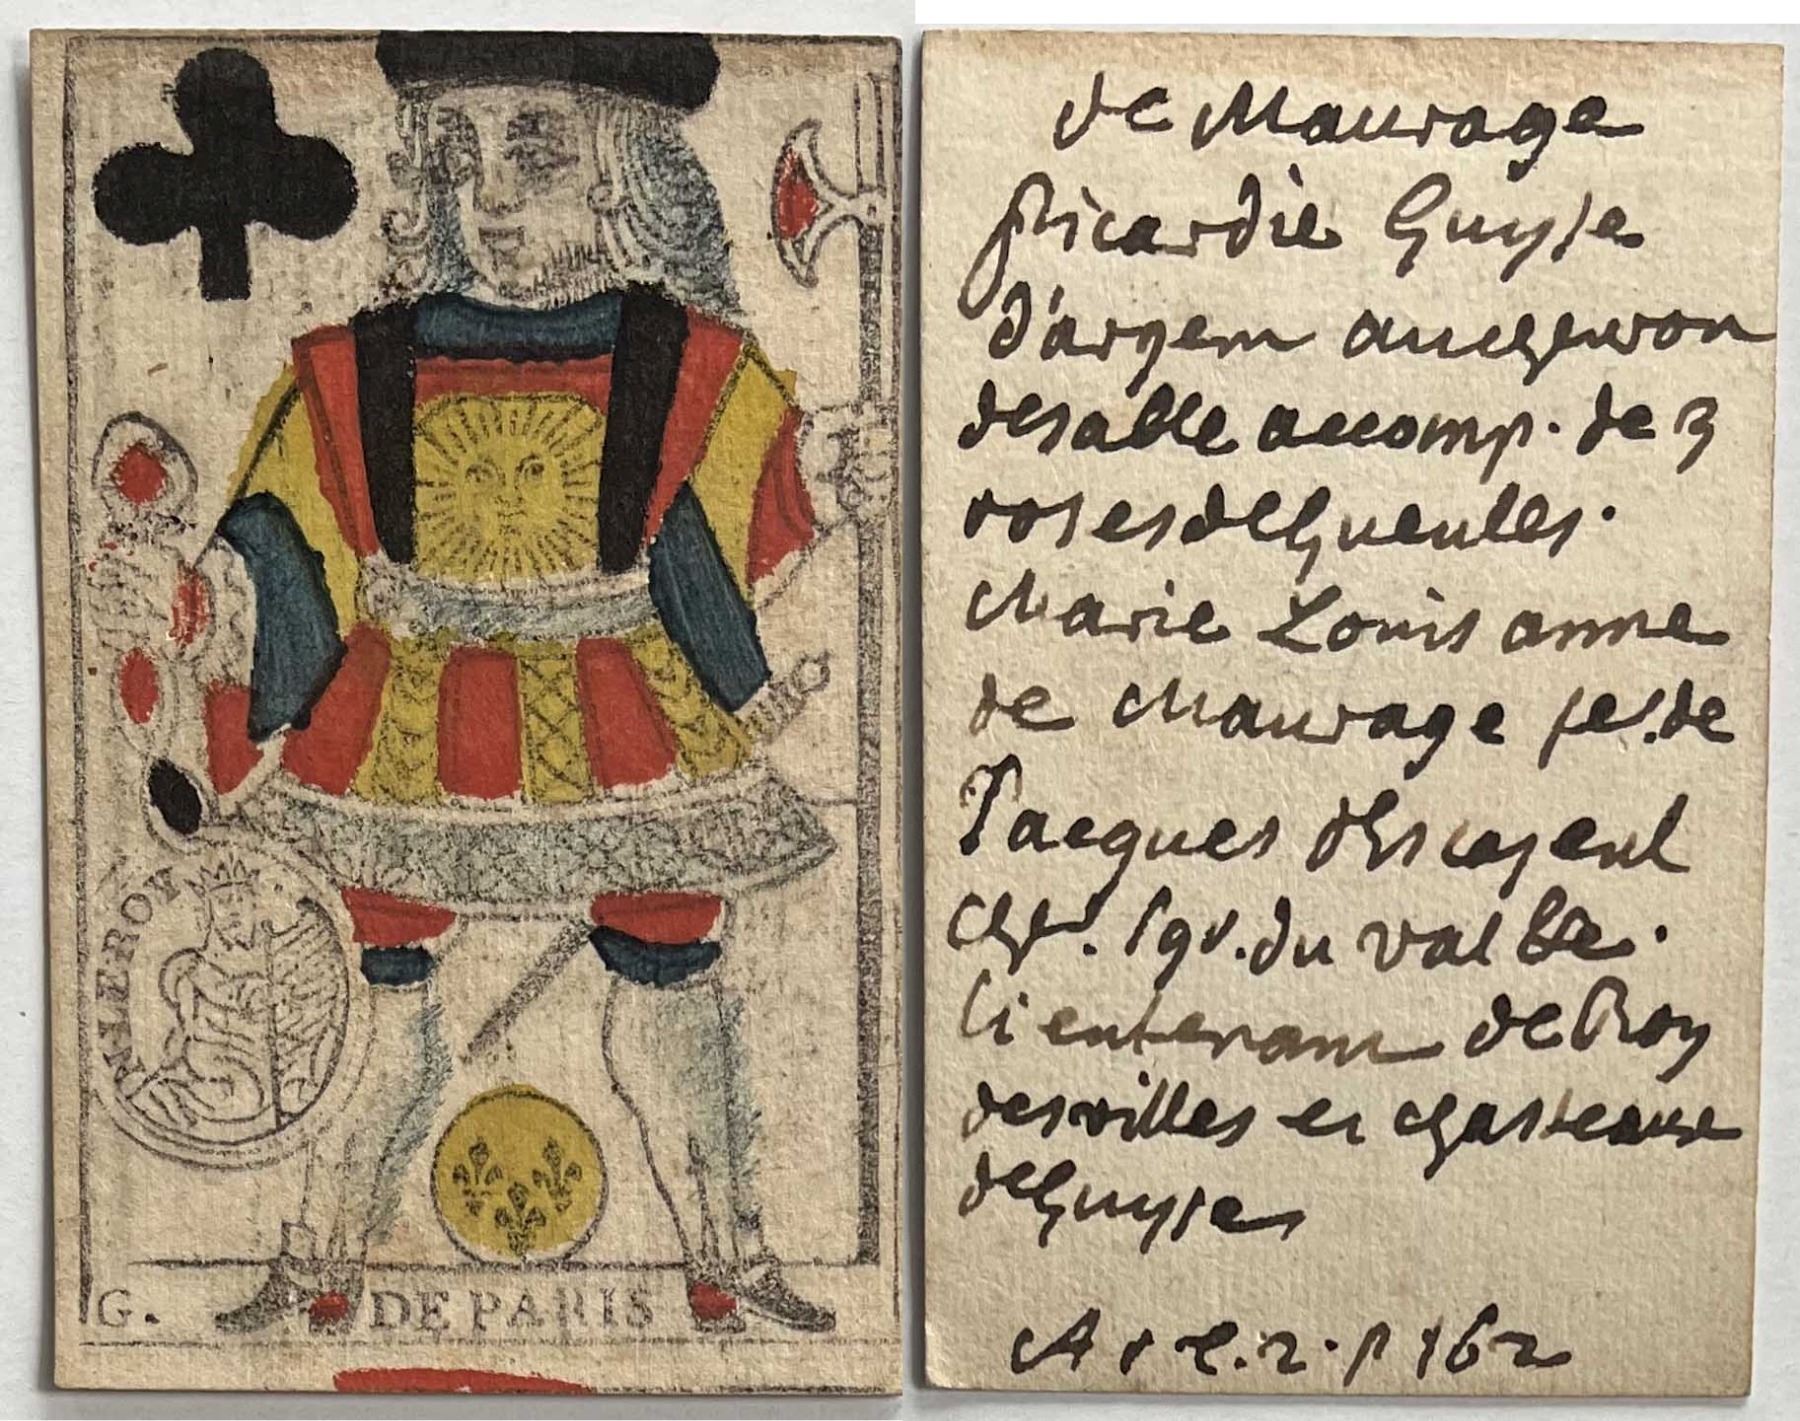 N. LEROY
G. DE PARIS
de Maurage
picardie Guyse
d'argent au chevron
de sable accomp. de 3
roses de Gueules.
Marie Louis anne
de Maurage fe. de
Jacques
chr. sgr. du val
lieutenant de Roy
des villes et chasteaux
de Guyse